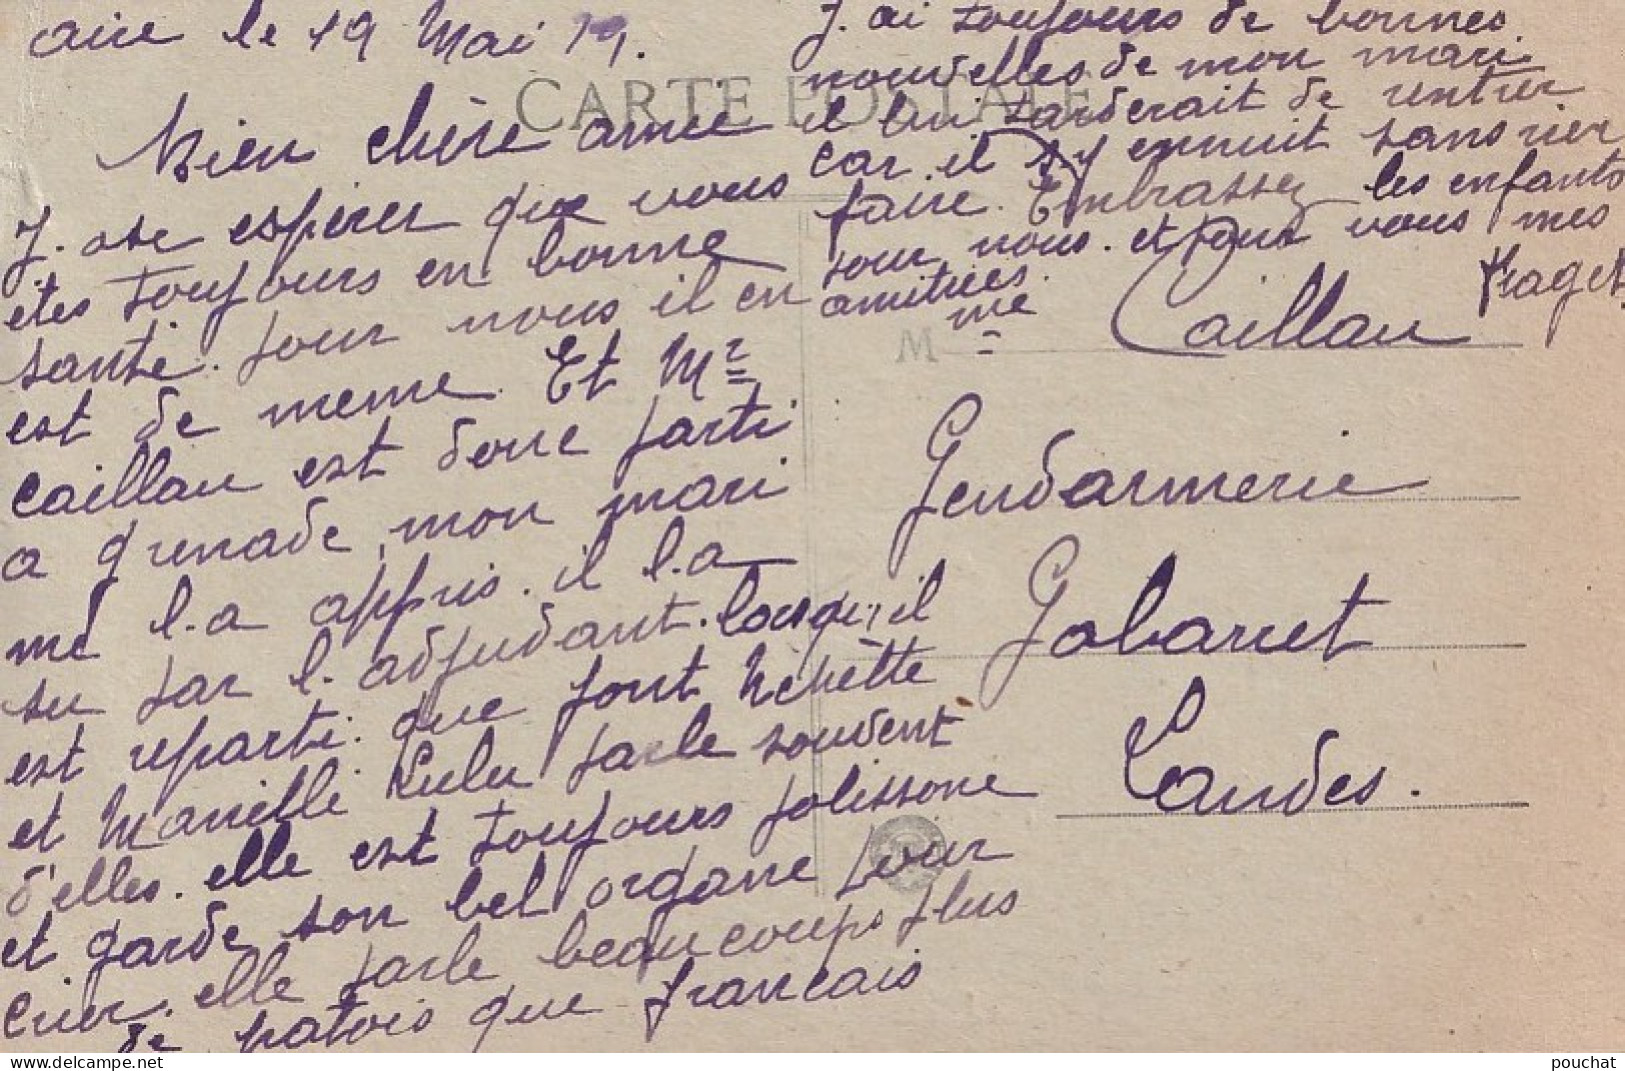 aire le 19 Mai 19.
CARTE POSTALE
Bien chère amie
J. ose espérer que vous
etes toujours en bonne
santé. pour nous il en
est de meme. Et Mr
Caillau est donc parti
a grenade, mon mari
me l.a appris. il l.a
su par l. adjudant. lorsqu'il
est reparti. que font
et Lulu parle souvent
d'elles. elle est toujours polissone
et garde son bel organe pour
crier. elle parle beaucoups plus
de patois que francais
J. ai toujours de bonnes
nouvelles de mon mari
il lui tarderait de rentrer
car il s'y ennuit sans rien
faire. Embrassez les enfants
pour nous. et pour vous mes
amitiées.
M me Caillau
Gendarmerie
Gabarret
Landes.
pouchat